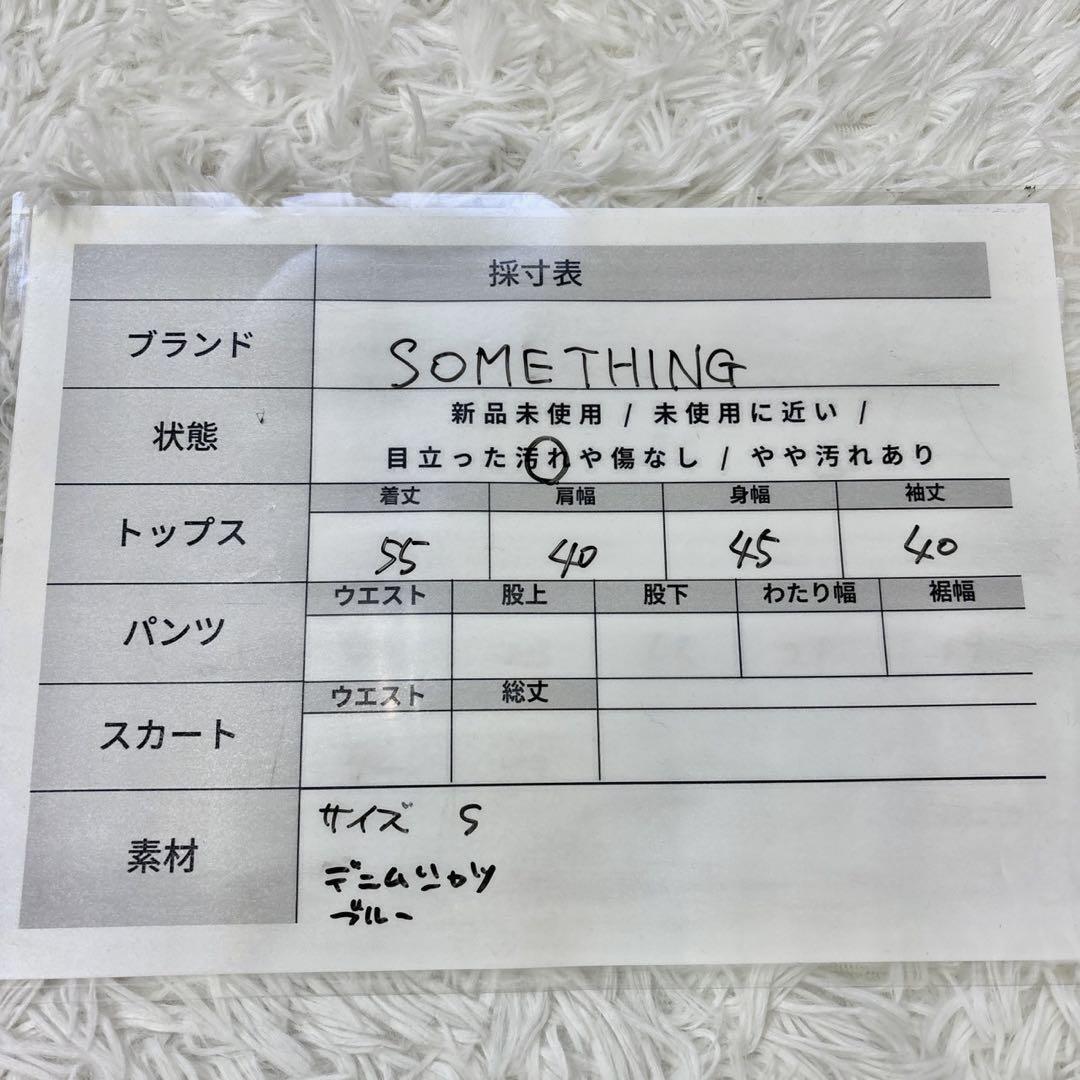 採寸表
ブランド SOMETHING
状態 新品未使用 / 未使用に近い /
目立った汚れや傷なし / やや汚れあり
トップス 着丈 肩幅 身幅 袖丈
55 40 45 40
パンツ ウエスト 股上 股下 わたり幅 裾幅
スカート ウエスト 総丈
素材 サイズ S
デニムシャツ
ブルー